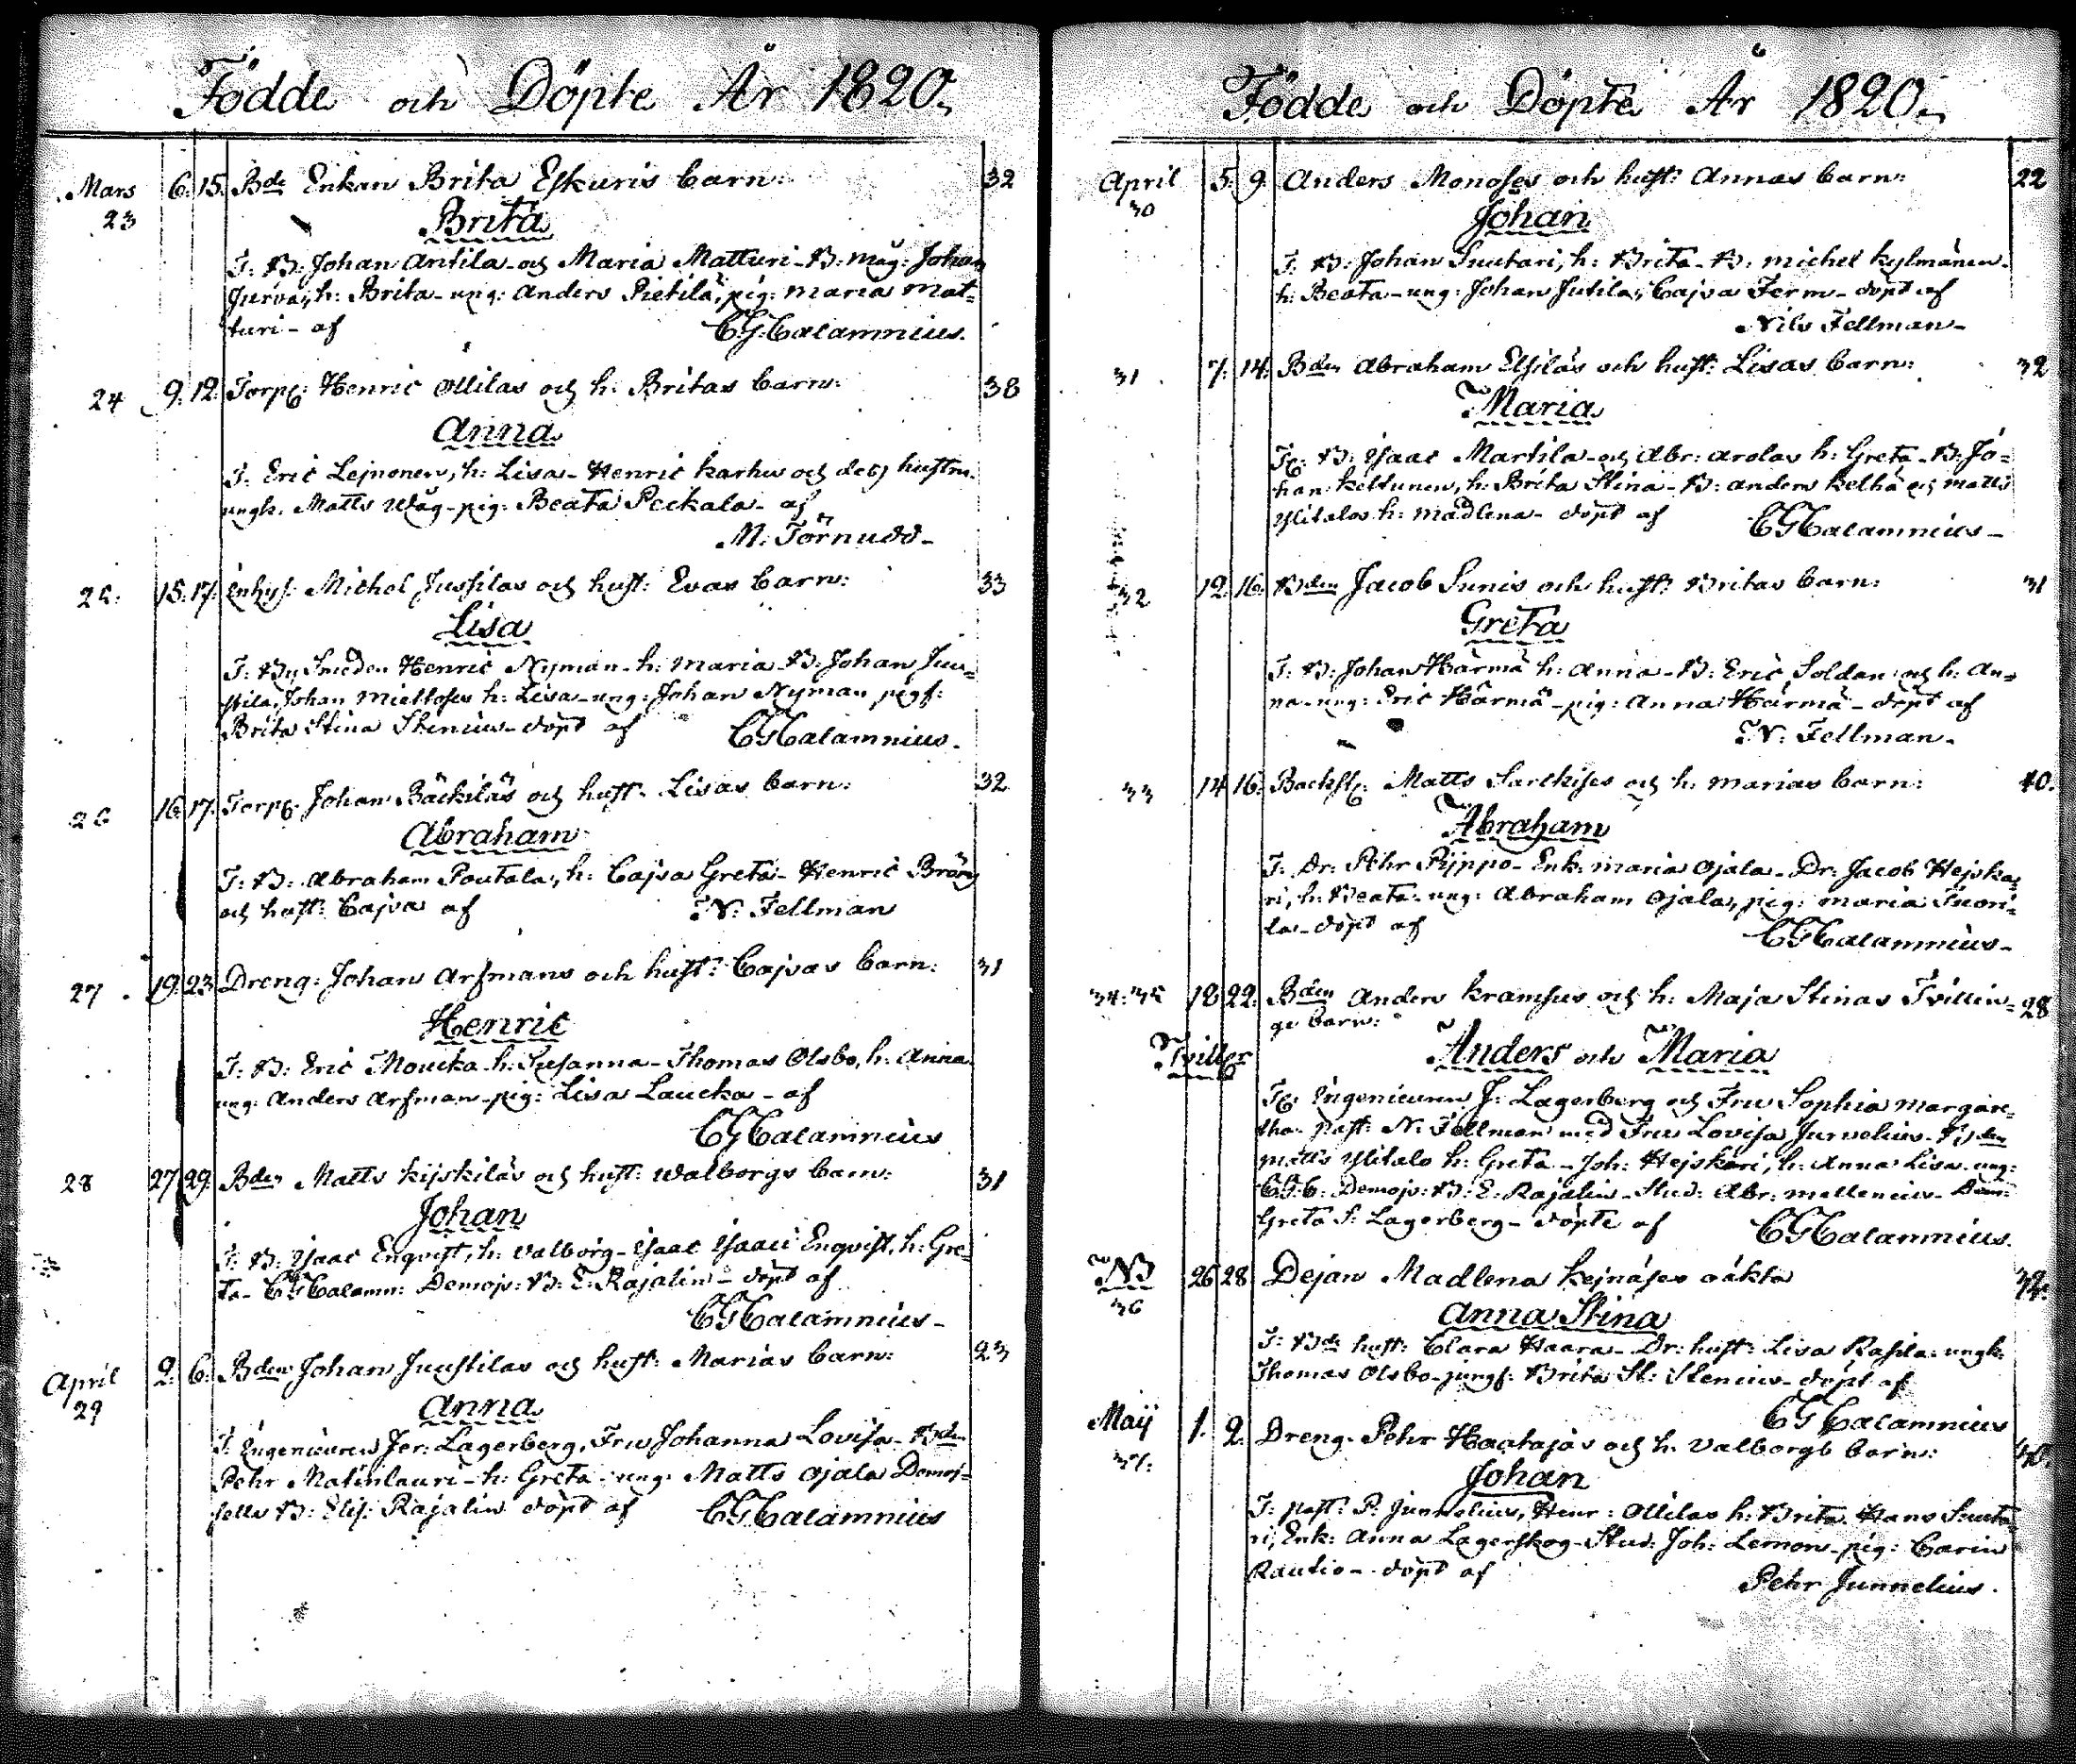 Födde och Döpte År 1820.
Mars 6. 15. Bde Enkan Brita Eskuris barn: 32
23
Brita
T: B: Johan Antila och Maria Matturi - B: måg: Johan
Jurva, h: Brita - ung: Anders Pietilä, pig: Maria Mat=
turi - af C.G. Calamnius.
24 9. 12. Torp: Henric Ollilas och h: Britas barn: 38
Anna
T: Eric Lejnonen, h: Lisa - Henric Karhu och dess hustru
ungk. Matts Wåg - pig: Beata Peckala - af
M. Törnudd -
25. 15. 17. Inhys: Michel Jussilas och hust: Evas barn: 33
Lisa
T: By Smeden Henric Nyman - h: Maria - B: Johan Juu=
stila, Johan Miettoses h: Lisa - ung: Johan Nyman pigf:
Brita Stina Stenius - döpt af CGCalamnius.
26 16. 17. Torp: Johan Bäckiläs och hust: Lisas barn: 32
Abraham
T: B: Abraham Poutala, h: Cajsa Greta - Henric
och hust: Cajsa af N: Fellman
27 19. 23 Dreng: Johan Arfmans och hust: Cajsas barn: 31
Henric
T: B: Eric Moucka h: Susanna - Thomas Olsbo, h: Anna
ung: Anders Arfman - pig: Lisa Laucka - af
CGCalamnius
28 27 29. Bden Matts Kijskiläs och hust: Walborgs barn: 31
Johan
T: B: Isaac Enqvist, h: Valborg - Isaac Isaacs Enqvist, h: Gre=
ta - CGCalamn: Demojs: B: E: Rajalin - döpt af
CGCalamnius -
April 2. 6. Bden Johan Juustilas och hust: Marias barn: 23
29
Anna
T: Engenieuren Jer: Lagerberg, Fru Johanna Lovisa - Bden
Pehr Matinlauri - h: Greta - ung: Matts Ojala Demoi=
selle B: Elis: Rajalin döpt af CGCalamnius
Födde och Döpte År 1820.
April 5. 9. Anders Monoses och hust: Annas barn: 22
30
Johan
T: B: Johan Suutari, h: Brita - B: Michel Kylmänen -
h: Beata - ung: Johan Jutila, Cajsa Ferm - döpt af
Nils Fellman -
31 7. 14. Bden Abraham Elsiläs och hust: Lisas barn: 32
Maria
T: B: Isaac Martila - och Abr: Arolas h: Greta - B: Jo=
han Keltunen, h: Brita Stina - B: Anders Kelhä och Matts
Ylitalos h: Madlena - döpt af CGCalamnius -
32 12. 16. Bden Jacob Sunis och hust: Britas barn: 31
Greta
T: B: Johan Härmä h: Anna - B: Eric Soldan och h: An=
na - ung: Eric Härmä - pig: Anna Härmä - döpt af
N: Fellman -
33 14 16. Backst: Matts Sarckises och h: Marias barn: 40.
Abraham
T: Dr: Pehr Pijppo - Enk: Maria Ojala - Dr: Jacob Hejska=
ri, h: Beata - ung: Abraham Ojala, pig: Maria Tuori=
la - döpt af CGCalamnius -
34: 35 18 22. Bden Anders Kramsus och h: Maja Stinas Tvillin= 28
ge barn:
Tviller Anders och Maria
T: Engenieuren J: Lagerberg och Fru Sophia Margare=
tha - past: N: Fellman med Fru Lovisa Junnelius - Bden
Matts Ylitalo h: Greta - Joh: Hejskari, h: Anna Lisa - ung:
CGC: Demojs: B: E: Rajalin - Stud: Abr: Mellenius - Dem:
Greta S: Lagerberg - döpte af CGCalamnius.
NB 26 28 Dejan Madlena Kejnäses oäkta 32.
36
Anna Stina
T: Bde hust: Clara Haara - Dr: hust: Lisa Rasila - ungk:
Thomas Olsbo - jungf: Brita St: Stenius - döpt af
CGCalamnius
Maij 1. 2. Dreng. Pehr Haatajas och h: Valborgs barn: 40.
37.
Johan
T: past: P: Junnelius, Henr: Ollilas h: Brita - Hans Suuta=
ri, Enk: Anna Lagerskog - Stud: Joh: Lemon - pig: Carin
Rautio - döpt af Pehr Junnelius.